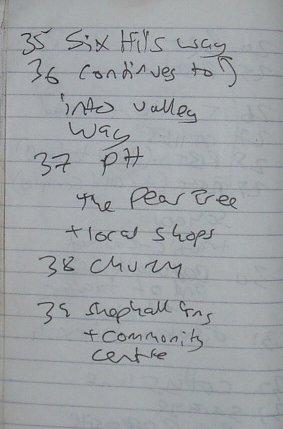 35 Six Hills way
36 continues to
into valley
way
37 PH
the Pear Tree
+ local shops
38 church
39 shephall grn
+ community
centre